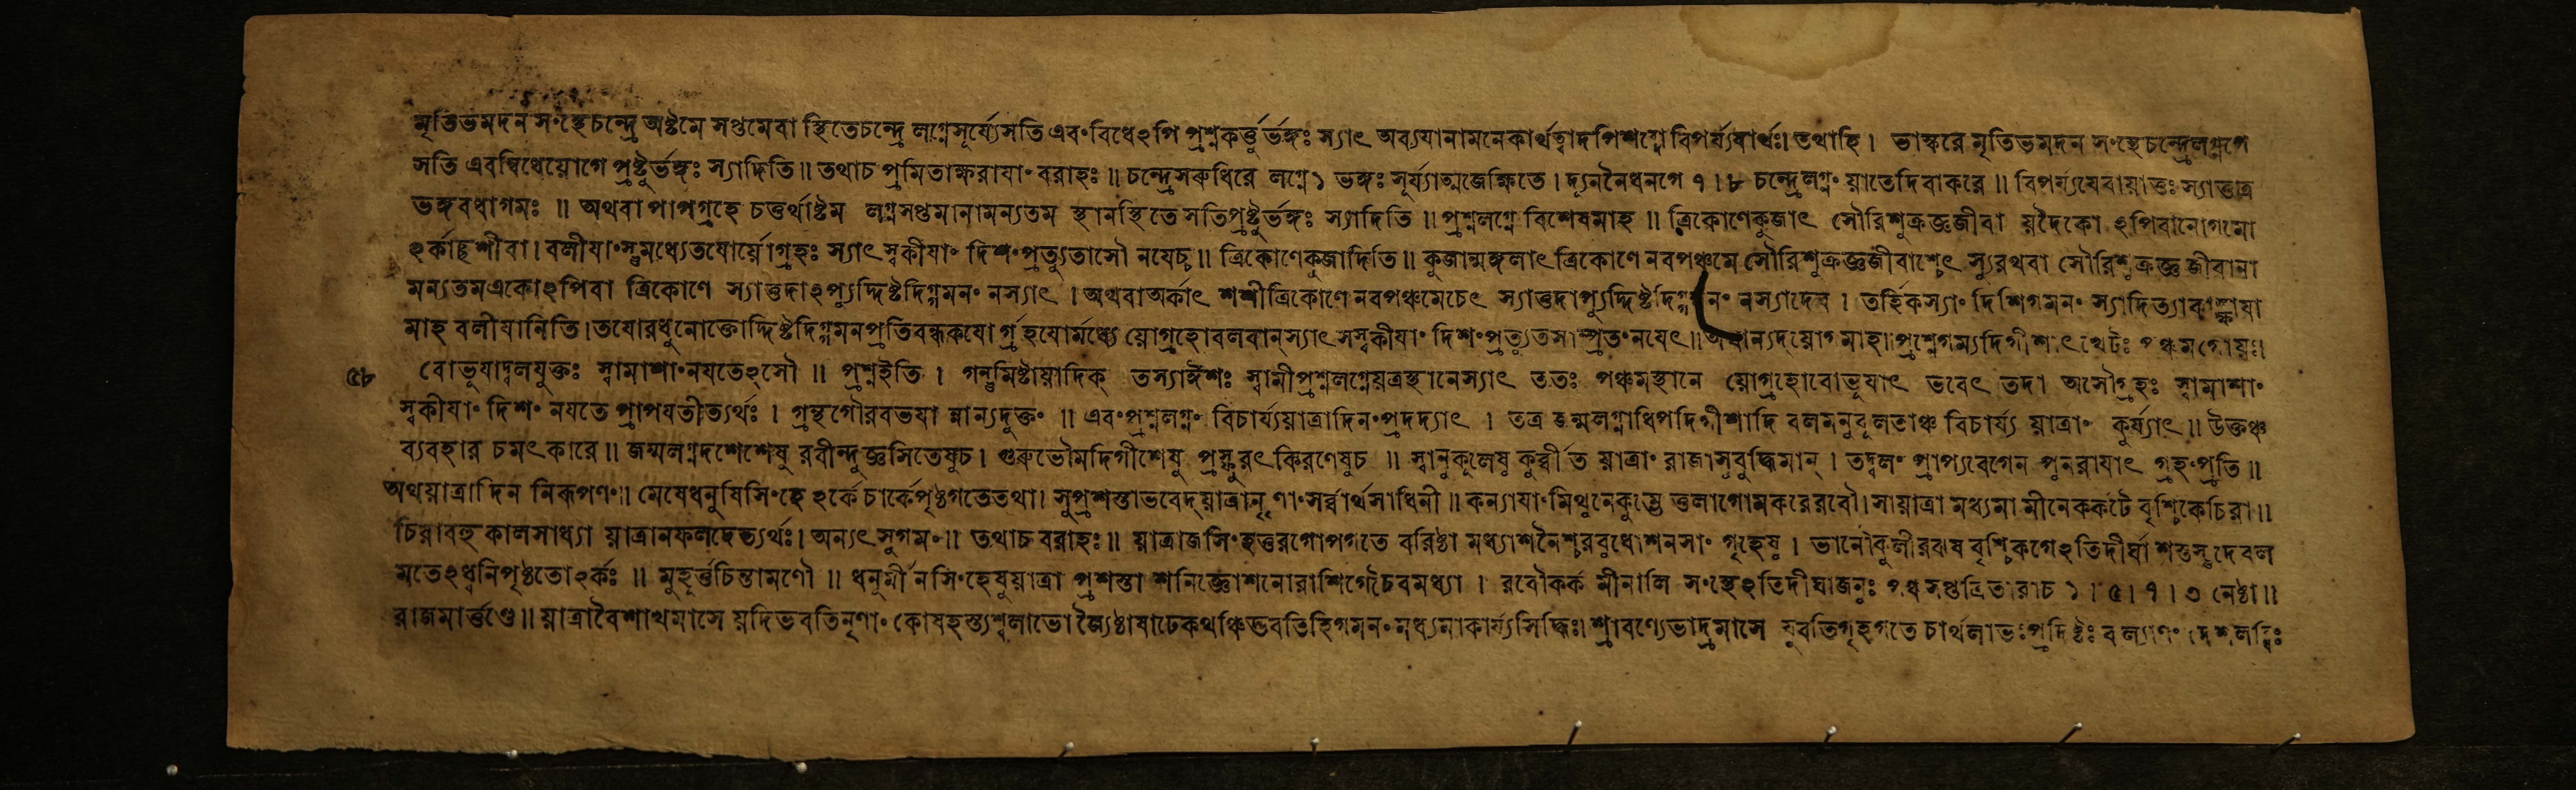 মৃতিভমদন সংস্থেচন্দ্রে অষ্টমে সপ্তমেবা স্থিতেচন্দ্রে লগ্নেসূর্য্যেসতি এবংবিধেঽপি প্রশ্নকর্ত্তুর্ভঙ্গঃ স্যাৎ অব্যয়ানামনেকার্থত্বাদপিশব্দো বিপর্য্যয়ার্থঃ। তথাহি। ভাস্করে মৃতিভমদন সংস্থেচন্দ্রেলগ্নগে
সতি এবম্বিধেয়োগে প্রষ্টুর্ভঙ্গঃ স্যাদিতি॥ তথাচ প্রমিতাক্ষরাযাং বরাহঃ॥ চন্দ্রেসরুধিরে লগ্নে১ ভঙ্গঃ সূর্য্যাত্মজেক্ষিতে। দ্যূননৈধনগে ৭।৮ চন্দ্রেলগ্নং য়াতেদিবাকরে॥ বিপর্য্যযেবায়াত্তুঃস্যাত্তত্র
ভঙ্গবধাগমঃ॥ অথবা পাপগ্রহে চতুর্থাষ্টম লগ্নসপ্তমানামন্যতম স্থানস্থিতে সতিপ্রষ্টুর্ভঙ্গঃ স্যাদিতি॥ প্রশ্নলগ্নে বিশেষমাহ॥ ত্রিকোণেকুজাৎ সৌরিশুক্রজ্ঞজীবা য়দৈকো ঽপিবানোগমো
ঽর্কাচ্ছশীবা। বলীযাংস্তুমধ্যেতযোর্য়োগ্রহঃ স্যাৎ স্বকীযাং দিশং প্রত্যুতাসৌ নযেচ্চ॥ ত্রিকোণেকুজাদিতি॥ কুজান্মঙ্গলাৎ ত্রিকোণে নবপঞ্চমে সৌরিশুক্রজ্ঞজীবাশ্চেৎ স্যুরথবা সৌরিশুক্রজ্ঞ জীবানা
মন্যতমএকোঽপিবা ত্রিকোণে স্যাত্তদাঽপ্যুদ্দিষ্টদিগ্গমনং নস্যাৎ। অথবাঅর্কাৎ শশীত্রিকোণে নবপঞ্চমেচেৎ স্যাত্তদাপ্যুদ্দিষ্টদিগ্গমনং নস্যাদেব। তর্হিকস্যাং দিশিগমনং স্যাদিত্যাকাঙ্ক্ষাযা
মাহ বলীযানিতি। তযোরধুনোক্তোদ্দিষ্টদিগ্গমনপ্রতিবন্ধকযো র্গ্রহযোর্মধ্যে য়োগ্রহোবলবান্স্যাৎ সস্বকীযাং দিশং প্রত্যুতসাম্প্রতং নযেৎ॥ অথান্যদ্য়োগমাহ॥ প্রশ্নেগম্যদিগীশাৎখেটঃ পঞ্চমগোয়ঃ।
৫৮ বোভূযাদ্বলযুক্তঃ স্বামাশাং নযতেঽসৌ॥ প্রশ্নইতি। গন্তুমিষ্টায়াদিক্ তস্যাঈশঃ স্বামীপ্রশ্নলগ্নেয়ত্রস্থানেস্যাৎ ততঃ পঞ্চমস্থানে য়োগ্রহোবোভূযাৎ ভবেৎ তদা অসৌগ্রহঃ স্বামাশাং
স্বকীযাং দিশং নযতে প্রাপযতীত্যর্থঃ। গ্রন্থগৌরবভযা ন্নান্যদুক্তং॥ এবং প্রশ্নলগ্নং বিচার্য্যয়াত্রাদিনং প্রদদ্যাৎ। তত্র জন্মলগ্নাধিপদিগীশাদি বলমনুকূলতাঞ্চ বিচার্য্য য়াত্রাং কুর্য্যাৎ॥ উক্তঞ্চ
ব্যবহার চমৎকারে॥ জন্মলগ্নদশেশেষু রবীন্দুজ্ঞসিতেষুচ। গুরুভৌমদিগীশেষু প্রস্ফুরৎকিরণেষুচ॥ স্বানুকূলেষু কুর্ব্বীত য়াত্রাং রাজাসুবুদ্ধিমান্। তদ্বলং প্রাপ্যবেগেন পুনরাযাৎ গৃহং প্রতি॥
অথয়াত্রাদিন নিরূপণং॥ মেষেধনুষিসিংহে ঽর্কেচার্কেপৃষ্ঠগতেতথা। সুপ্রশস্তাভবেদ্য়াত্রানৃণাং সর্ব্বার্থসাধিনী॥ কন্যাযাং মিথুনেকুম্ভে তুলাগোমকরেরবৌ। সায়াত্রা মধ্যমা মীনেকর্কটে বৃশ্চিকেচিরা॥
চিরাবহু কালসাধ্যা য়াত্রানফলদেত্যর্থঃ। অন্যৎ সুগমং॥ তথাচ বরাহঃ॥ য়াত্রাজসিংহতুরগোপগতে বরিষ্ঠা মধ্যাশনৈশ্চরবুধোশনসাং গৃহেষু। ভানৌকুলীরঝষ বৃশ্চিকগেঽতিদীর্ঘা শস্তস্তুদেবল
মতেঽধ্বনিপৃষ্ঠতোঽর্কঃ॥ মুহূর্ত্তচিন্তামণৌ॥ ধনুর্মীনসিংহেষুয়াত্রা প্রশস্তা শনিজ্ঞোশনোরাশিগেচৈবমধ্যা। রবৌকর্ক মীনালি সংস্থেঽতিদীর্ঘাজনুঃ পঞ্চ সপ্তত্রিতারাচ ১।৫।৭।৩ নেষ্টা॥
রাজমার্ত্তণ্ডে॥ য়াত্রাবৈশাখমাসে য়দিভবতিনৃণাং কোষহস্ত্যশ্বলাভো জ্যৈষ্ঠাষাঢেকথঞ্চিদ্ভবতিহিগমনং মধ্যমাকার্য্যসিদ্ধিঃ। শ্রাবণ্যেভাদ্রমাসে যুবতিগৃহগতে চার্থলাভঃপ্রদিষ্টঃ